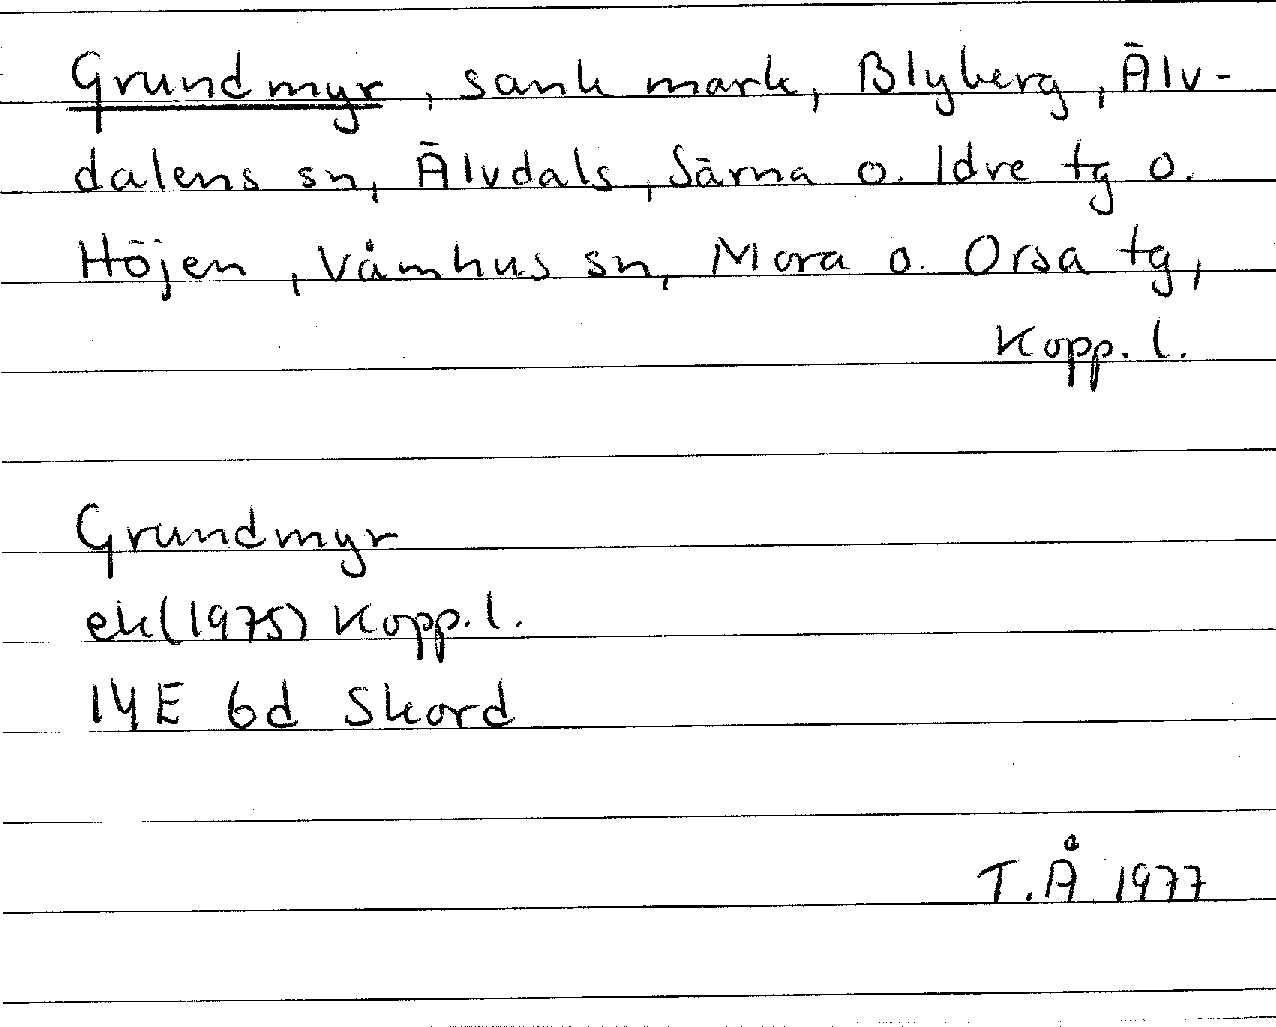 Grundmyr, sank mark, Blyberg, Älv-
dalens sn, Älvdals, Särna o. Idre tg o.
Höjen, Våmhus sn, Mora o. Orsa tg,
Kopp. l.
Grundmyr
ek (1975) Kopp. l.
14E 6d Skord
T.Å 1977